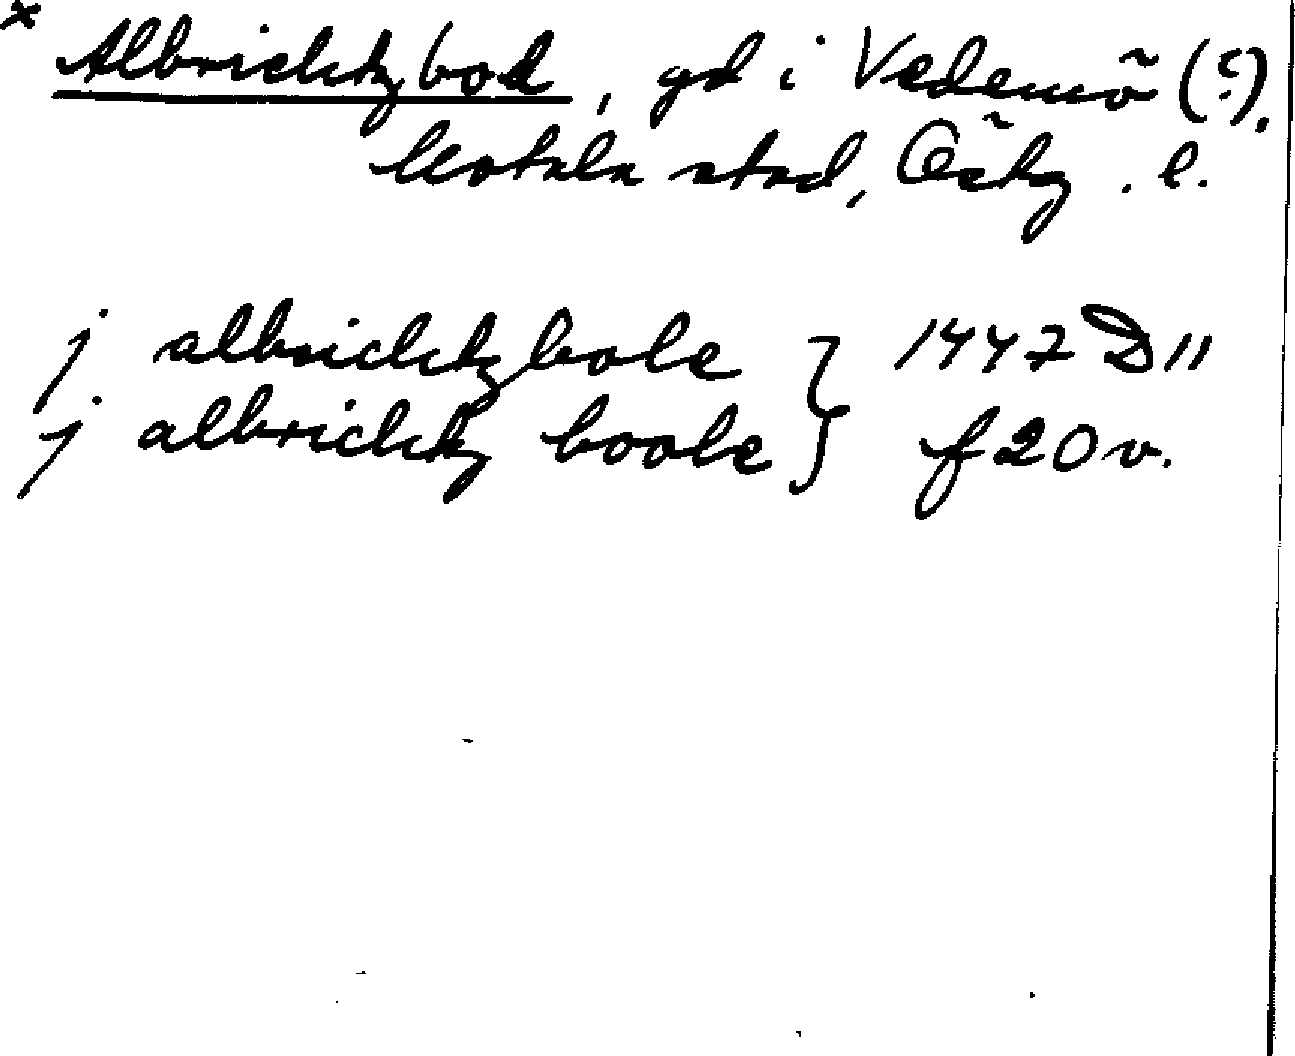 * Albrichtzbod, gd i Vedemö (?),
Motala stad, Östg. l.
j albrichtzbole } 1447 D 11
j albrichtz boole } f 20 v.